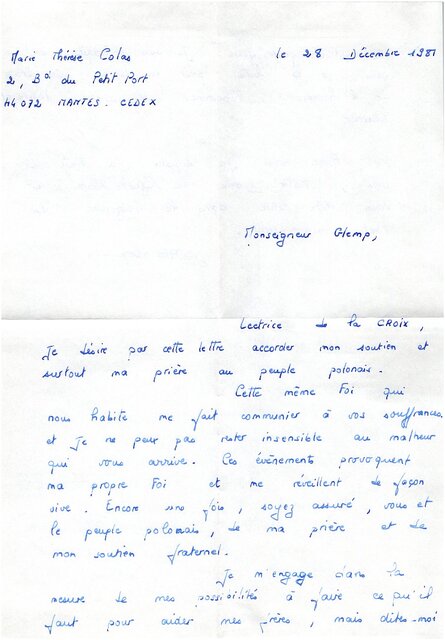 Marie Thérèse Colas
le 28 Décembre 1981
2, Bd du Petit Port
44072 NANTES. CEDEX
Monseigneur Glemp,
Lectrice de la CROIX,
Je désire par cette lettre accorder mon soutien et
surtout ma prière au peuple polonais.
Cette même Foi qui
nous habite me fait communier à vos souffrances
et je ne peux pas rester insensible au malheur
qui vous arrive. Ces évènements provoquent
ma propre Foi et me réveillent de façon
vive. Encore une fois, soyez assuré, vous et
le peuple polonais, de ma prière et de
mon soutien fraternel.
Je m'engage dans la
mesure de mes possibilités à faire ce qu'il
faut pour aider mes frères, mais dites-moi